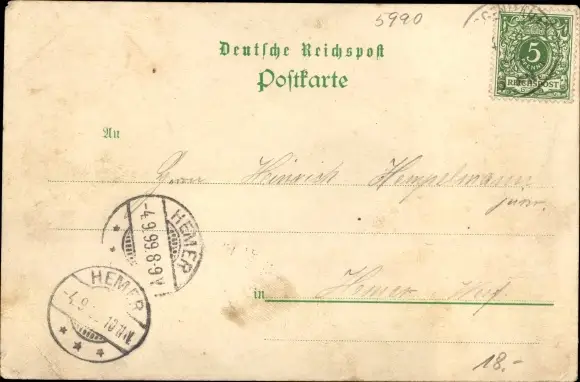 5990
5
PFENNIG
REICHSPOST
Deutsche Reichspost
Postkarte
An
Herrn Heinrich Hempelmann
junr.
HEMER
-4.9.99.8-9.V.
HEMER
-4.9
in Hemer Westf.
18.-